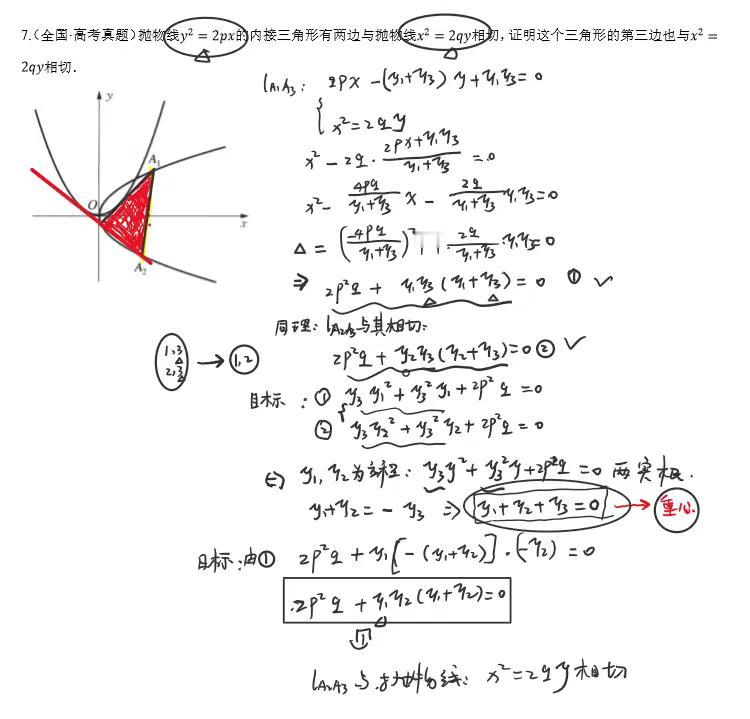 7.（全国·高考真题）抛物线y²=2px的内接三角形有两边与抛物线x²=2qy相切，证明这个三角形的第三边也与x²=
2qy相切.
l_{A₁A₃}: 2px-(y₁+y₃)y+y₁y₃=0
x²=2qy
x²-2q·\frac{2px+y₁y₃}{y₁+y₃}=0
x²-\frac{4pq}{y₁+y₃}x-\frac{2q}{y₁+y₃}y₁y₃=0
y
A₁
O
x
A₂
⇒ 2p²q+y₁y₃(y₁+y₃)=0 ① ✓
同理: l_{A₂A₃}与其相切:
1,3
2,3
→ 1,2
2p²q+y₂y₃(y₂+y₃)=0 ② ✓
目标: ① y₃y₁²+y₃²y₁+2p²q=0
② y₃y₂²+y₃²y₂+2p²q=0
⇔ y₁,y₂为方程: y₃y²+y₃²y+2p²q=0 两实根.
y₁+y₂=-y₃ ⇒ y₁+y₂+y₃=0 → 重心
目标:由① 2p²q+y₁[-(y₁+y₂)]·(-y₂)=0
2p²q+y₁y₂(y₁+y₂)=0
⇓
l_{A₂A₃}与抛物线: x²=2qy相切